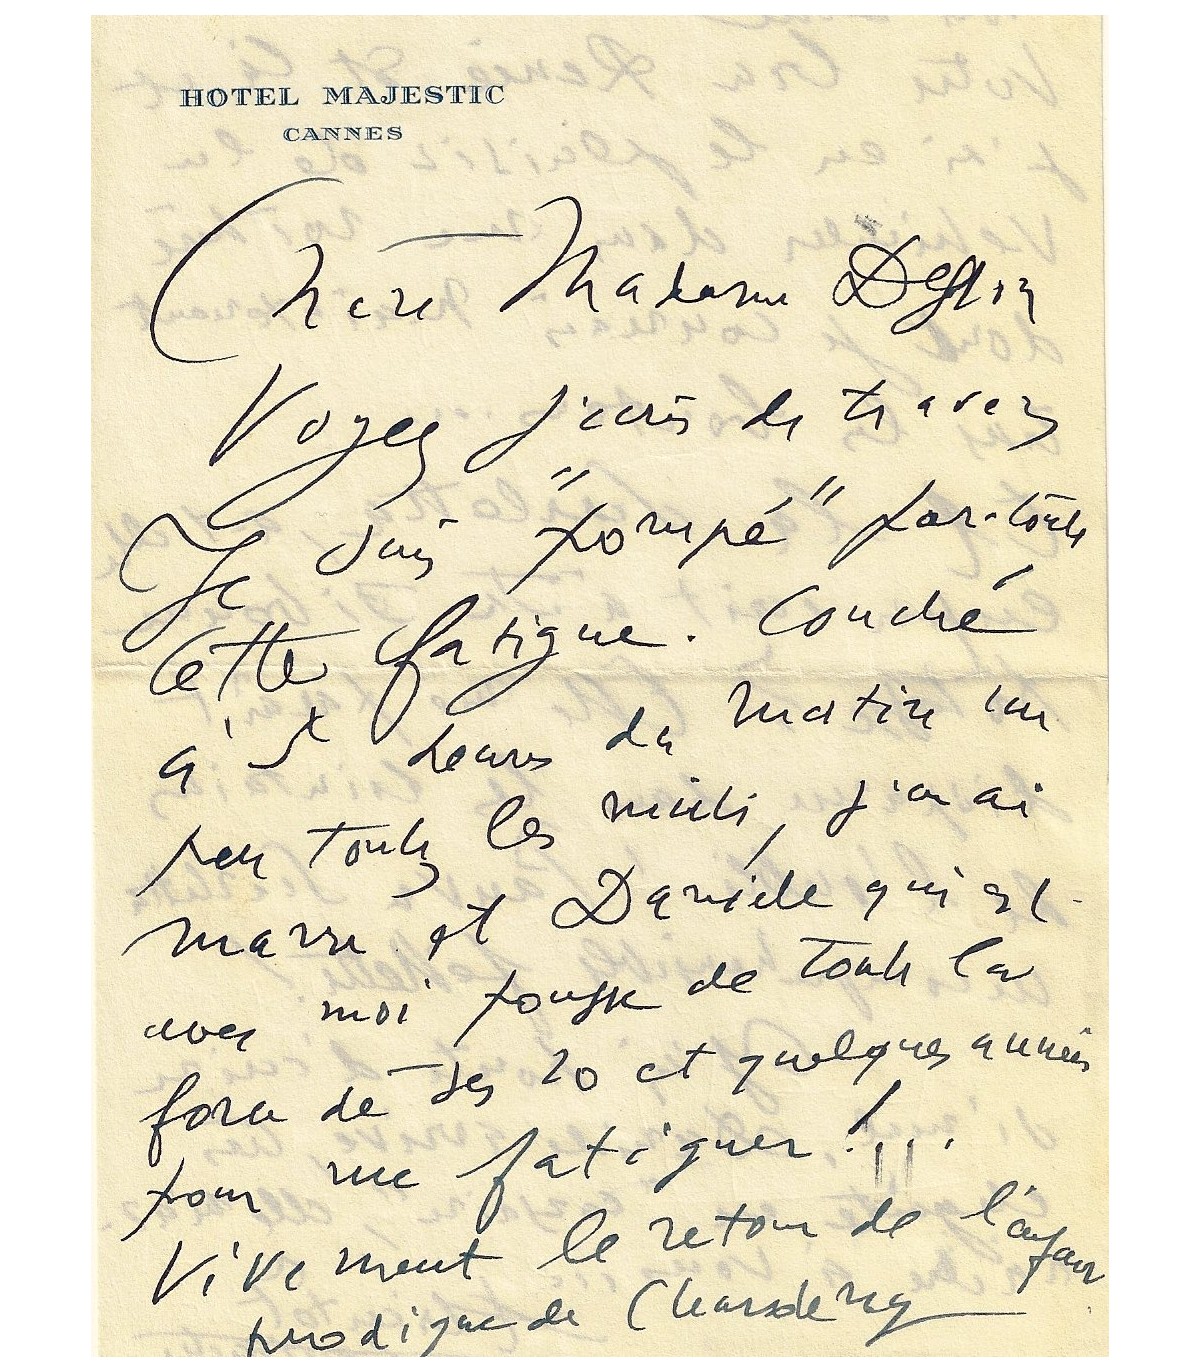 HOTEL MAJESTIC
CANNES
Chère Madame
Voyez j'écris de travers
Je suis "pompé" par toute
cette fatigue. Couché
à 5 heures du matin un
peu toutes les nuits, j'en ai
marre et Danièle qui est
avec moi pousse de toute la
force de ses 20 et quelques années
pour me fatiguer !!!
Vivement le retour de
prodigue de